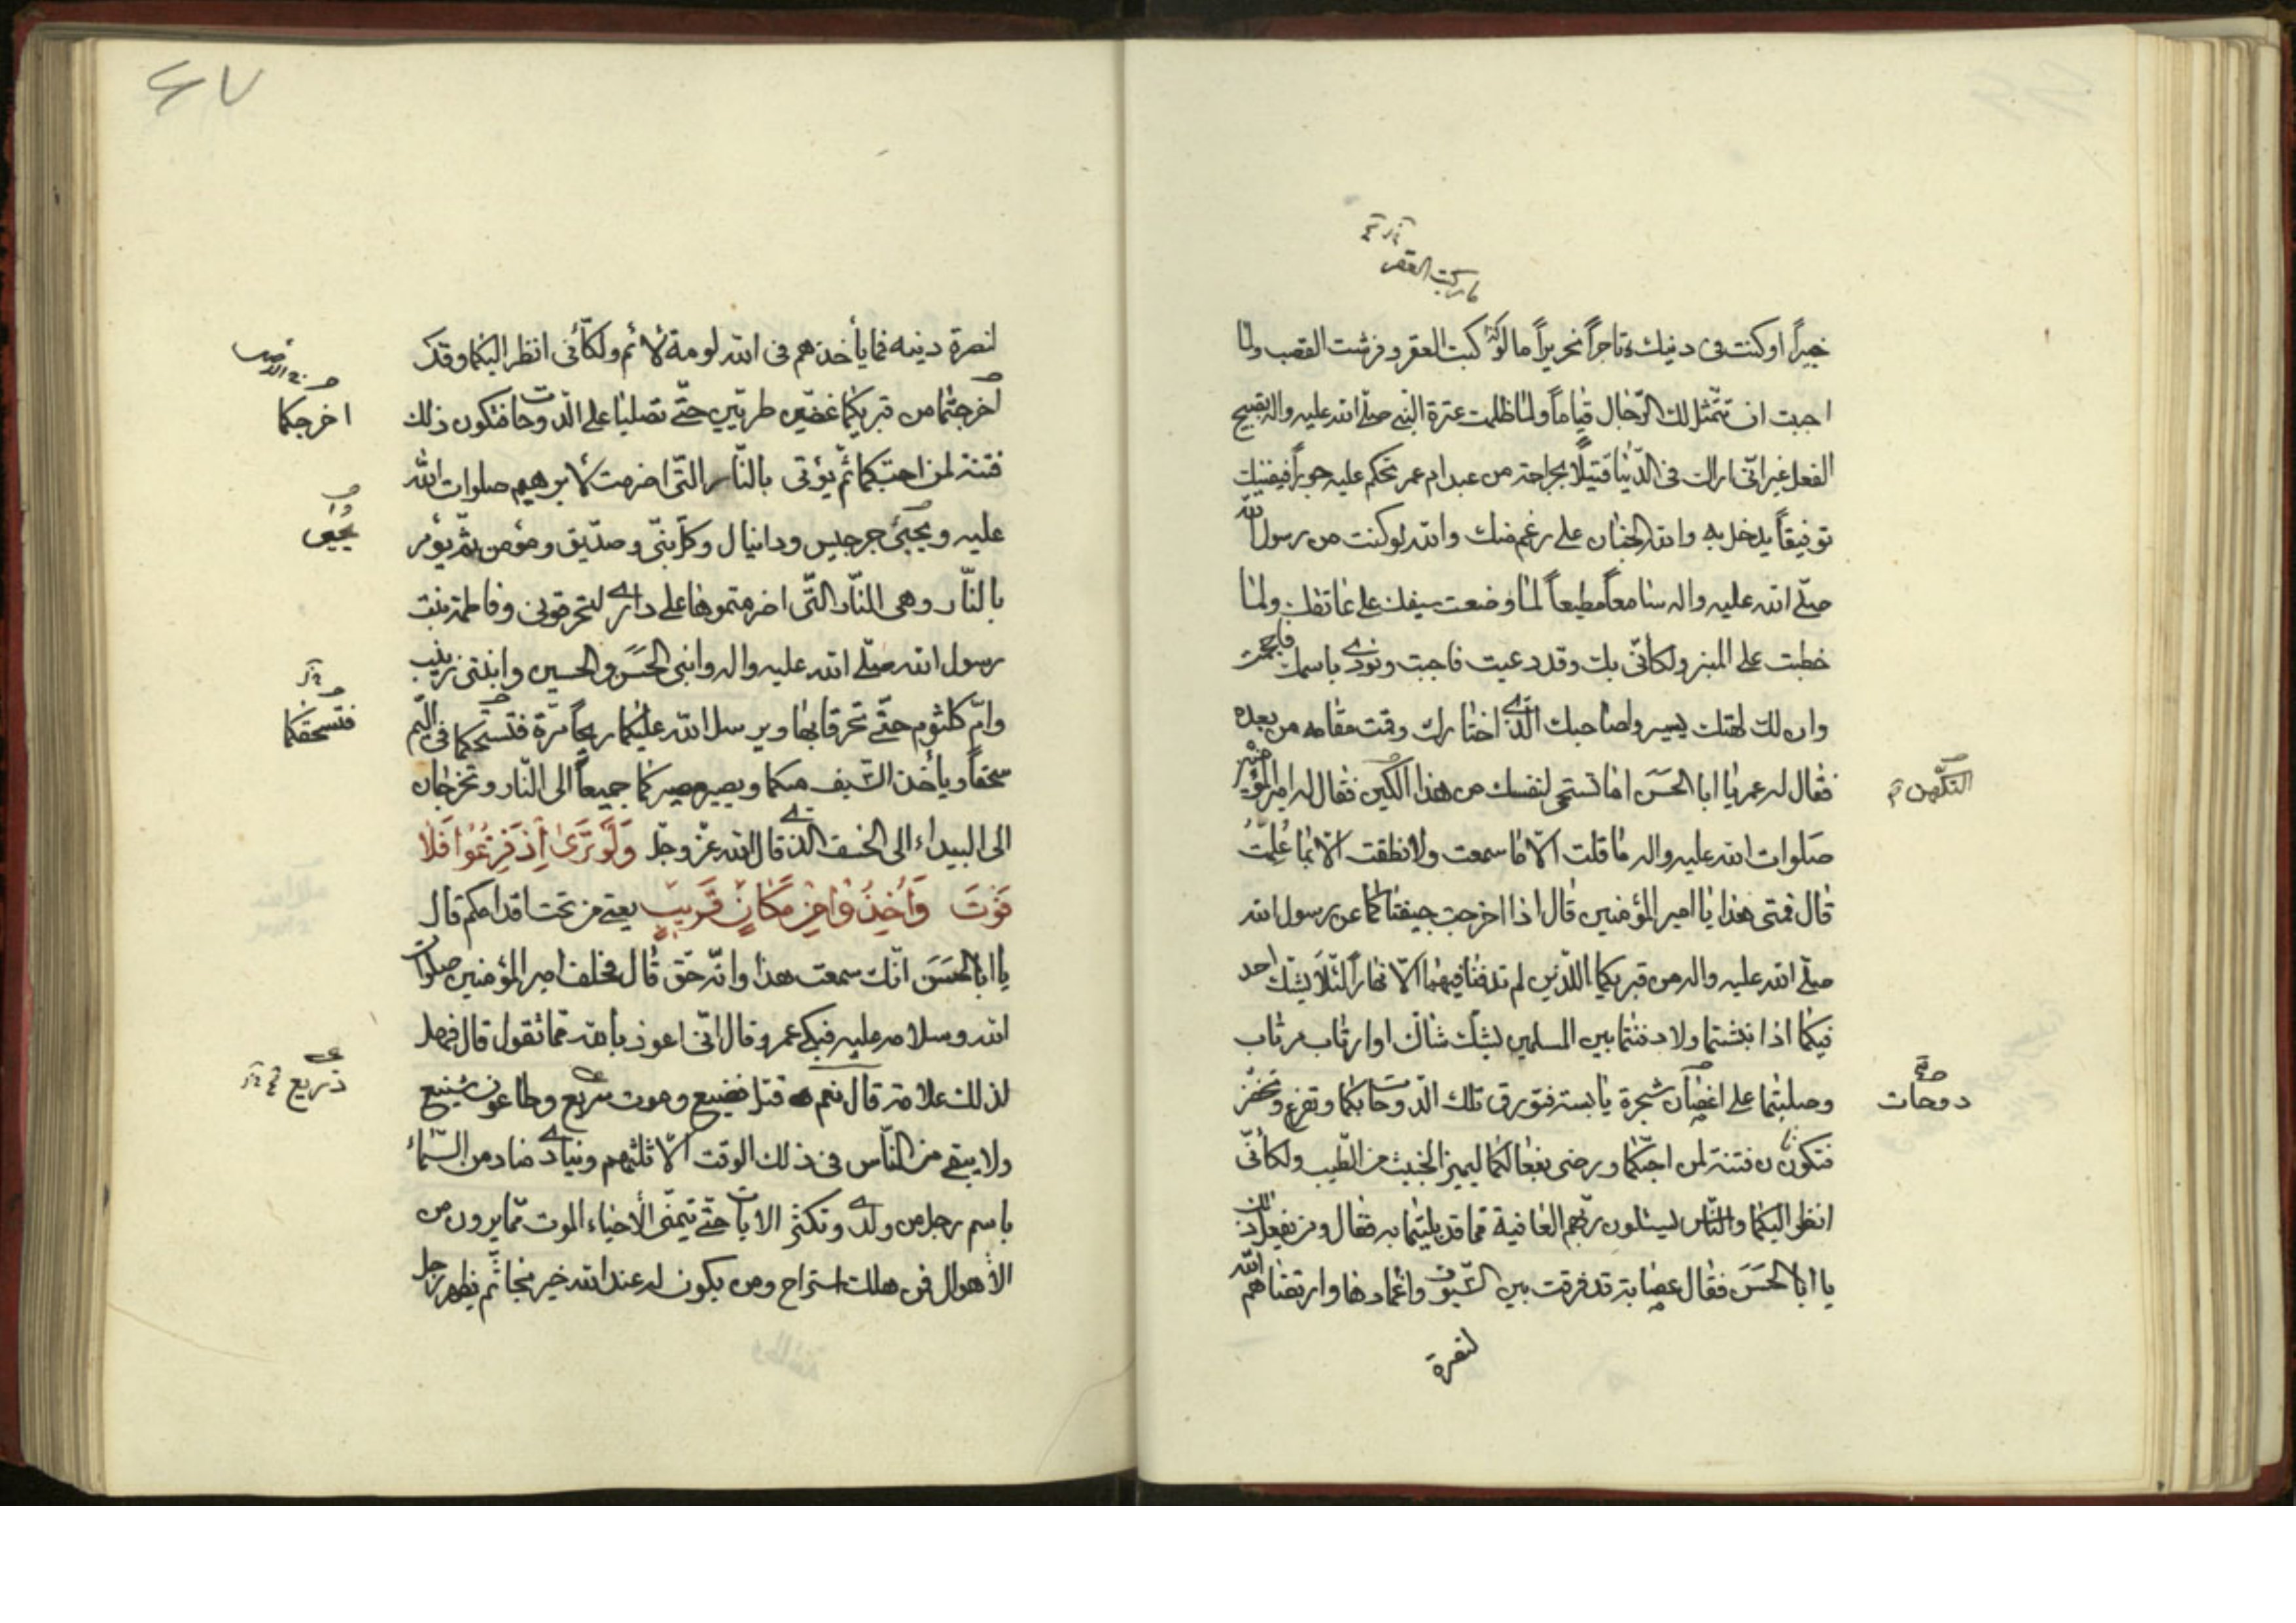 ما ركبت العقر
خبيراً اوكنت فى دنيك تاجراً نحريراً ما لو كنت ركبت العقر وفرشت القصب ولما
احببت ان تتمثل لك الرّجال قياماً ولما ظلمت عترة النبى صلّى الله عليه واله بقبيح
الفعل غير انّى اراك فى الدّنيا قتيلاً بجراحة من عبد ام عمر تحكم عليه جوراً فيقتلك
توفيقاً يدخل به والله الجنان على رغم منك والله لوكنت من رسول الله
صلّى الله عليه واله سامعاً مطيعاً لما وضعت سيفك على عاتقك ولما
خطبت على المنبر ولكانّى بك وقد دعيت فاجبت ونودى باسمك فاحجمت
وان لك لهتك يسير ولصاحبك الذّى اختارك وقمت مقامه من بعده
فقال له عمر يا ابا الحسَن اما تستحى لنفسك من هذا التكهن فقال له امير المؤمنين
التكّهن
صَلوات الله عليه واله ما قلت الاّ ما سمعت ولا نطقت الاّ بما عُلِّمتُ
قال فمتى هذا يا امير المؤمنين قال اذا اخرجت جيفتاكما عن رسول الله
صلّى الله عليه واله من قبريكما اللذّين لم تدفنا فيهما الاّ نهاراً لئلا يشك احد
فيكما اذا نبشتما ولا دفنتما بين المسلمين لشك شاك او ارتاب مرتاب
وصلبتما على اغصان شجرة يابسة فتورق تلك الدّوحات بكما وتفرع وتخضر
دوحات
فتكون فتنة لمن احبّكما ورضى بفعالكما ليميز الخبيث من الطّيب ولكأنّى
انظر اليكما والنّاس ليسئلون ربّهم العافية مما قد بليتما به فقال ومن يفعل ذلك
يا ابا الحَسَن فقال عصابة قد فرقت بين السّيوف واغمادها وارتضاهم الله
لنصرة
لنصرة دينه فما يأخذهم فى الله لومة لائم ولكأنّى انظر اليكما وقد
اخرجتما من قبريكما غضّين طريّين حتّى تصلبا على الدّوحات فتكون ذلك
اخرجكما
فتنة لمن احبّكما ثمّ يؤتى بالنّار التّى اضرمت لابرهيم صلوات الله
عليه ويحيى جرجيس ودانيال وكل نبىّ وصدّيق ومؤمن ثمّ يؤمر
بالنّار وهى النّار التّى اضرمتموها على دارى لتحرقونى وفاطمة بنت
رسول الله صلّى الله عليه واله وابنى الحَسَن والحسين وابنتى زينب
وامّ كلثوم حتّى تحرقا بها ويرسل الله عليكما ريحاً مرّة فتسحكما فى اليّم
فتسحقكما
سحقاً ويأخذ السّيف منكما ويصير مصيركما جميعاً الى النّار وتخرجان
الى البيداء الى الخسف الذى قال الله عزّ وجلّ وَلَوْ تَرَىٰ إِذْ فَزِعُوا فَلا
فَوْتَ وَأُخِذُوا مِن مَّكَانٍ قَرِيبٍ يعنى من تحت اقدامكم قال
يا ابا الحَسَن انّك سمعت هذا وانّه حَق قال فحلف امير المؤمنين صلوات
الله وسلامه عليه فبكى عمر وقال انّى اعوذ بالله ممّا تقول قال فهل
لذلك علامة قال نعم قتل فضيع وموت سريع وطاعون شنيع
ذريع
ولا يبقى من النّاس فى ذلك الوقت الاّ ثلثهم وينادى مناد من السّماء
باسم رجل من ولدى وتكثر الايات حتّى يتمنّى الأحياء الموت ممّا يرون من
الأهوال فمن هلك استراح ومن يكون له عند الله خير نجا ثمّ يظهر رجل